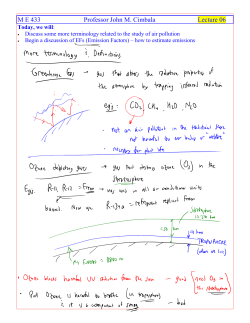 M E 433 Professor John M. Cimbala Lecture 06
Today, we will:
• Discuss some more terminology related to the study of air pollution
• Begin a discussion of EFs (Emission Factors) – how to estimate emissions
More terminology & Definitions
Greenhouse gas → gas that alters the radiative properties of
the atmosphere by trapping infrared radiation
eg: CO₂, CH₄, N₂O, H₂O
- not an air pollutant in the traditional sense
not harmful to our body or safety
- necessary for plant life
Ozone depleting gas → gas that destroys ozone (O₃) in the
stratosphere
Eg. R-11, R-12 = Freon → was used in all air conditioner units
banned. Now use R-134a = refrigerant replaced Freon
TROPOSPHERE
(where we live)
Mt Everest
• Ozone blocks harmful UV radiation from the sun → good
the stratosphere
• But Ozone is harmful to breathe (in troposphere)
& it is a component of smog — bad